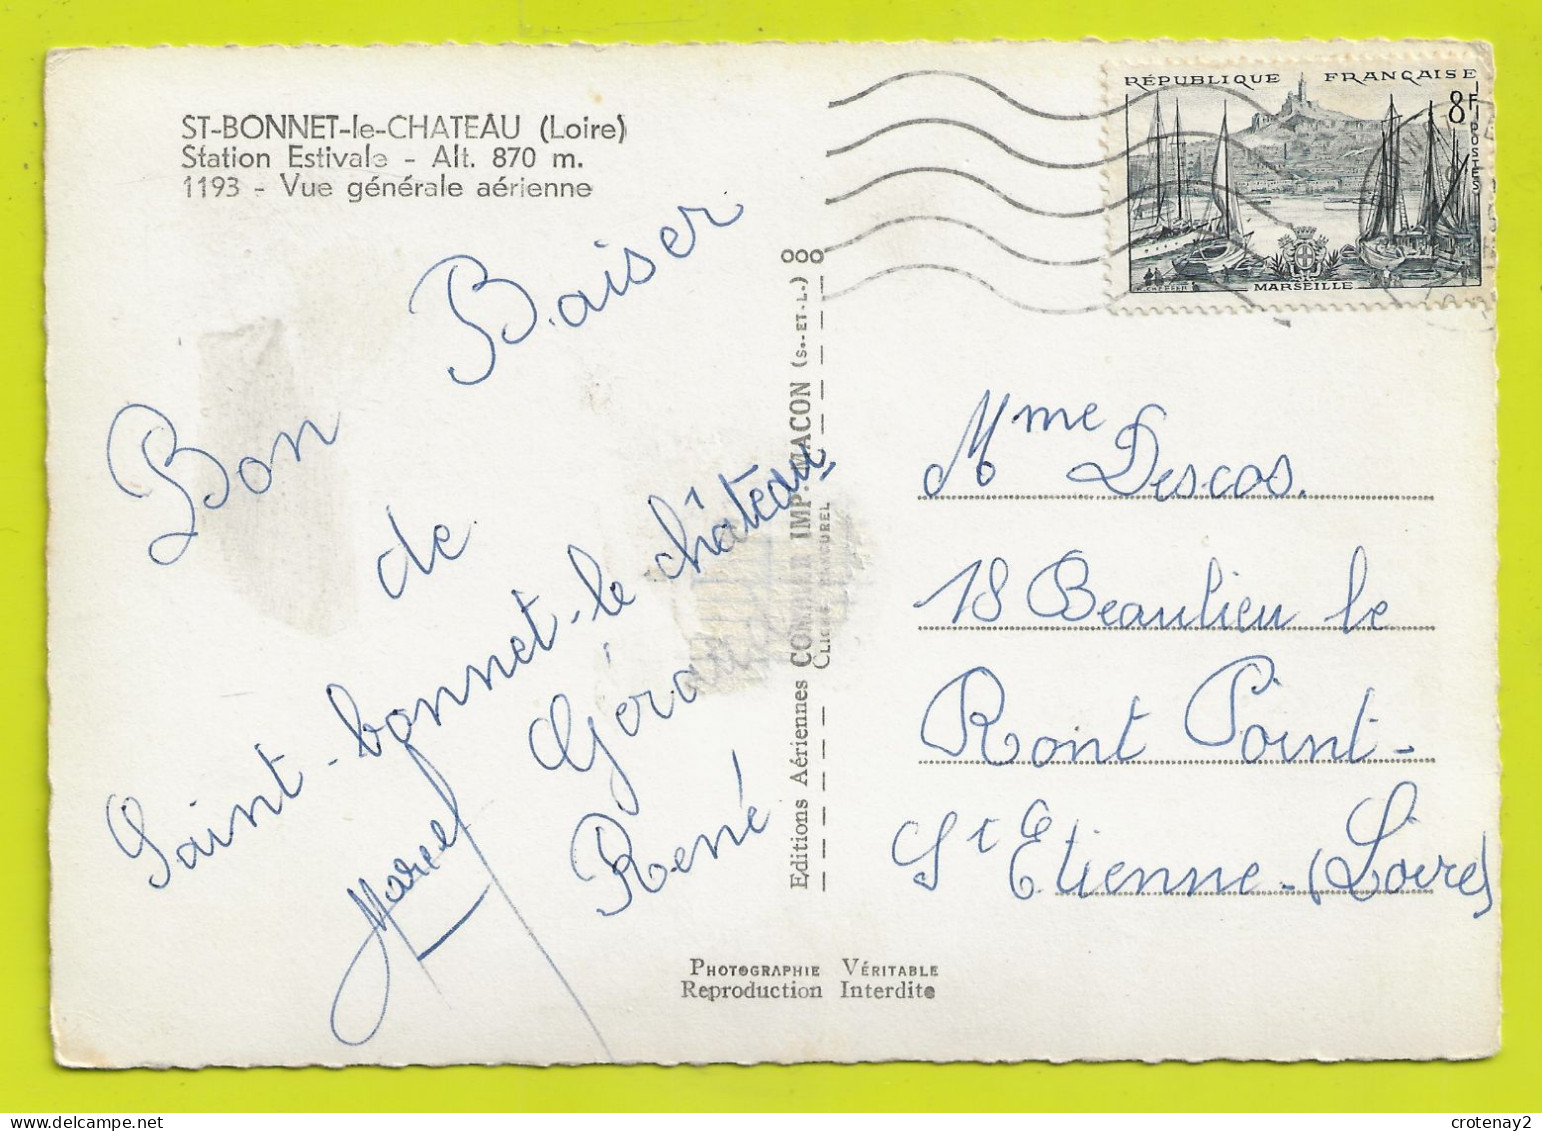 ST-BONNET-le-CHATEAU (Loire)
Station Estivale - Alt. 870 m.
1193 - Vue générale aérienne
Bon Baiser
de
Saint-bonnet-le château
Gérard
René
Marcel
Editions Aériennes COMBIER IMP. MACON (S.-ET-L.)
CLICHÉ
PHOTOGRAPHIE VÉRITABLE
Reproduction Interdite
RÉPUBLIQUE FRANÇAISE
8F
POSTES
MARSEILLE
Mme Descos.
18 Beaulieu le
Ront Point-
St Etienne-(Loire)
crotenay2